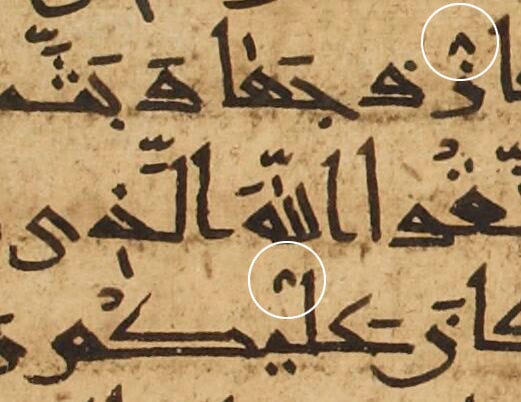 ا زَوْجَهَا وَبَثَّ
تَّقُوا اللَّهَ الَّذِى
كَانَ عَلَيْكُمْ